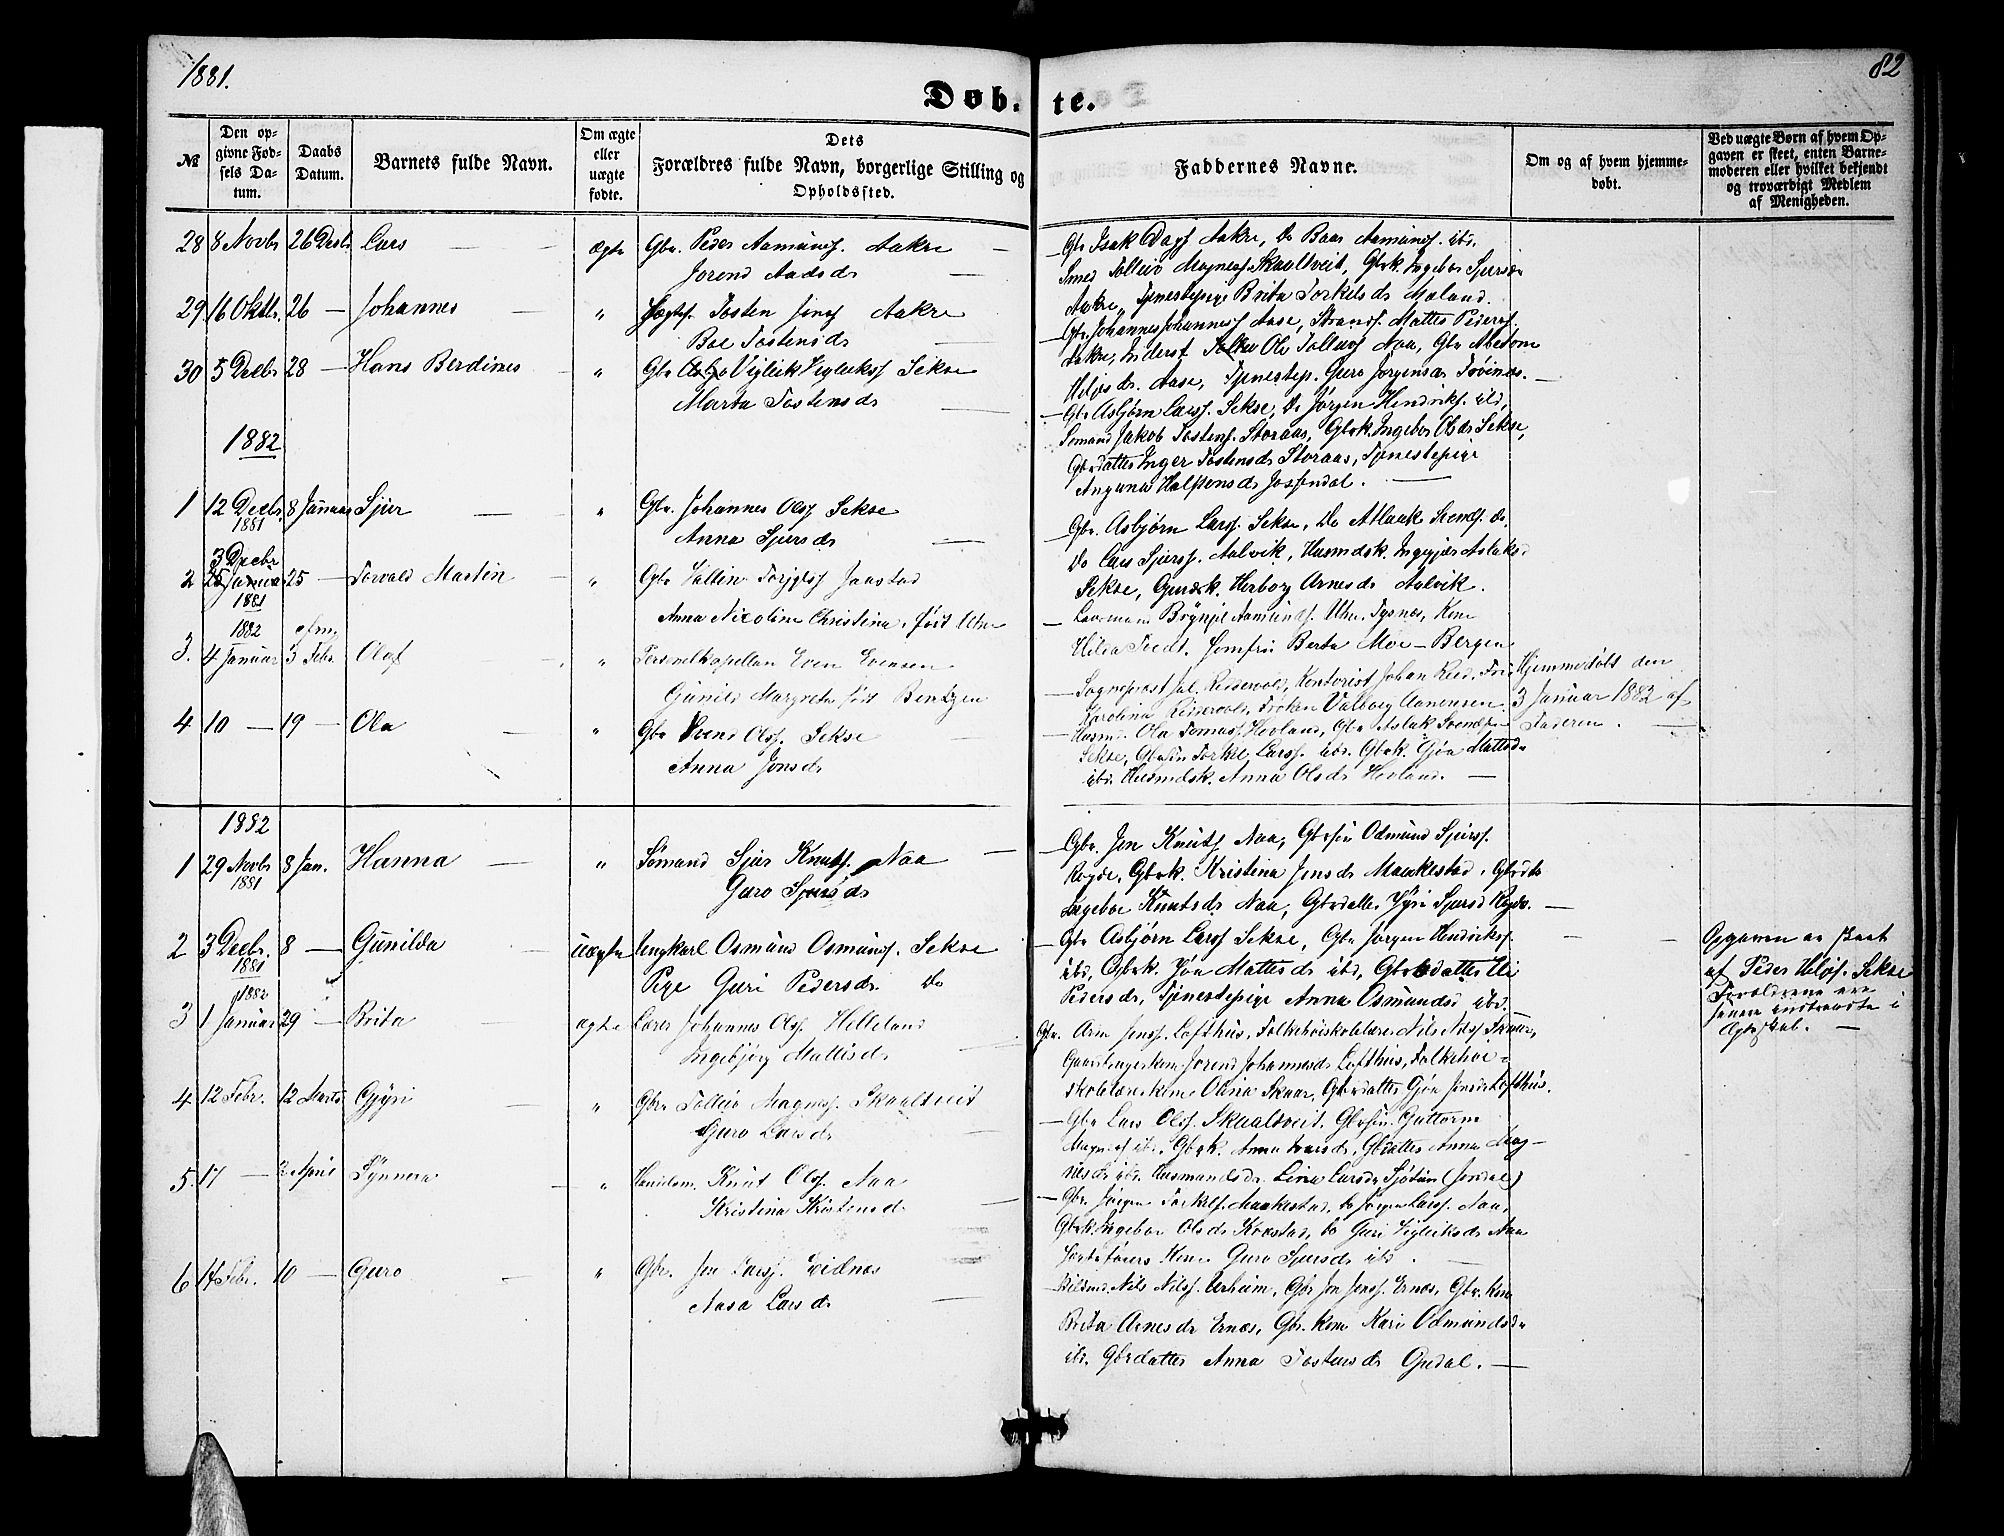 1881.
82
Døbte.
№
Den opgivne Fødsels Datum.
Daabs Datum.
Barnets fulde Navn.
Om ægte eller uægte fødte.
Dets Forældres fulde Navn, borgerlige Stilling og Opholdssted.
Faddernes Navne.
Om og af hvem hjemmedøbt.
Ved uægte Børn af hvem Opgaven er skeet, enten Barnemoderen eller hvilket bekjendt og troværdigt Medlem af Menigheden.
28 8 Novbr 26 Decbr. Lars — ægte Gbr. Peder Aamunds. Aakre —
Jorend Aadsdr —
Gbr Isak Dags. Aakre, Do Baar Aamunds. ibd.
Smed Tolleiv Magness. Skaaltveit, Gbrk. Ingebor Sjursdr
Aakre, Tjenestepige Brita Torkelsdr Mæland.
29 16 Oktbr. 26 — Johannes — " Tosten Aakre
Boe Tostensdr —
Gbr. Johannes Johanness. Aase, Strands. Mattes Peders.
Aakre, Inderst Ole Tollevs. Naa, Gbr
Aase, Tjenestep. Guro Jørgensdr —
30 5 Decbr 28 — Hans Berdines — " Gbr Vigleik Vigleiks. Sekse
Marta Tostensdr —
Gbr Asbjørn Larss. Sekse, Do Jørgen Hendriks. ibd,
Sømand Jakob Tostens. Storaas, Gbrk. Ingebor Olsdr Sekse,
Gbrdatter Inger Tostensdr Storaas, Tjenestepige
Halstensdr Jossendal. —
1882
1 12 Decbr. 1881 8 Januar Sjur — " Gbr. Johannes Ols. Sekse
Anna Sjursdr —
Gbr. Asbjørn Larss. Sekse, Do Aslaak do
Do Lars Sjurss. Aalvik, Husmdsk. Aslaksd
Sekse, Herborg Arnesdr Aalvik.
2 3 Decbr 25 Januar 1881 25 — Torvald Martin — " Gbr Jaastad
Anna Nicoline Christina, født Utne
— Aamunds. Utne, Tysnæs, Kone
Hilda Tredt, Jomfru Berta Moe — Bergen
3. 1882 4 Januar 3 Febr. Olaf " Personelkapellan Even Evensen
Gunild Margrete født Bentzen
— Sogneprest Jul. Riddervold, Kontorist Johan
Karolina Riddervold, Frøken Valborg Aanensen.
Hjemmedøbt den
3 Januar 1882 af
Faderen. —
4 10 — 19 — Ola " Gbr Svend Olss. Sekse —
Anna Jonsdr
Husmd. Ola Tomass. Hovland, Gbr Aslak Svends.
Sekse, Gbrsøn Torkel Larss. ibd. Gbrk. Gjøa Mattesdr
ibd. Husmdsk. Anna Olsdr Hovland. —
1882
1 29 Novbr 1881 8 Jan. Hanna — " Sømand Sjur Knuts. Naa —
Guro Sjursdr
— Gbr. Jon Knuts. Naa, Gbrsøn Odmund Sjurss.
Gbrk. Kristina Jonsdr Maakestad, Gbrdtr
Ingebor Knutsdr Naa, Gbrdatter Gjøri Sjursd —
2 3 Decbr. 1881 8 — Gunilda — uægte Ungkarl Osmund Osmunds. Sekse
Pige Guri Pedersdr. Do
— Gbr Asbjørn Larss Sekse, Gbr Jørgen Hendrikss.
ibd, Gbrk. Gjøa Mattesdr ibd, Gbrdatter Eli
Pedersdr, Tjenestepige Anna Osmundsd ibd.
Opgaven er skeet
af Peder Sekse
Forældrene ere
senere indtraadte i
Ægteskab. —
3 1882 1 Januar 29 — Brita — ægte Lærer Johannes Ols. Helleland
Ingebjørg Mattisdr —
Gbr. Arne Jonss. Lofthus, Folkehøiskolelærer Nils Nilss. Skaar,
Jorend Johannesdr Lofthus, Folkehøi-
skolelærerkone Olina Skaar, Gbrdatter Gjøa Jonsdr Lofthus.
4 12 Febr. 12 Marts Gjøri — " Gbr Tolleiv Magness. Skaaltveit
Guro Larsdr —
— Gbr Lars Olss. Skaaltveit. Gbrsøn. Guttorm
Magness ibd, Gbrk. Anna Larsdr, Gbrdatter Anna Mag-
nesdr ibd. Husmandsdr. Lina Larsdr (Jondal)
5. 17 — 2 April Synneva — " Knut Ols. Naa
Kristina Kristensd —
— Gbr. Jørgen Torkels. Maakestad, Do Jørgen Larss. Naa,
Gbrk. Ingebor Olsdr Kvæstad, Do Guri Vigleiksdr Naa
Kone Guro Sjursdr ibd. —
6 14 Febr. 10 — Guro — " Gbr. Jon Larss. Eidnæs
Aasa Larsdr —
Nils Nilss. Urheim, Gbr Jon Jonss. Ernæs, Gbr. Kone
Brita Arnesdr Ernæs, Gbr. Kone Kari Odmundsdr
ibd. Gbrdatter Anna Tostensdr Opedal. —